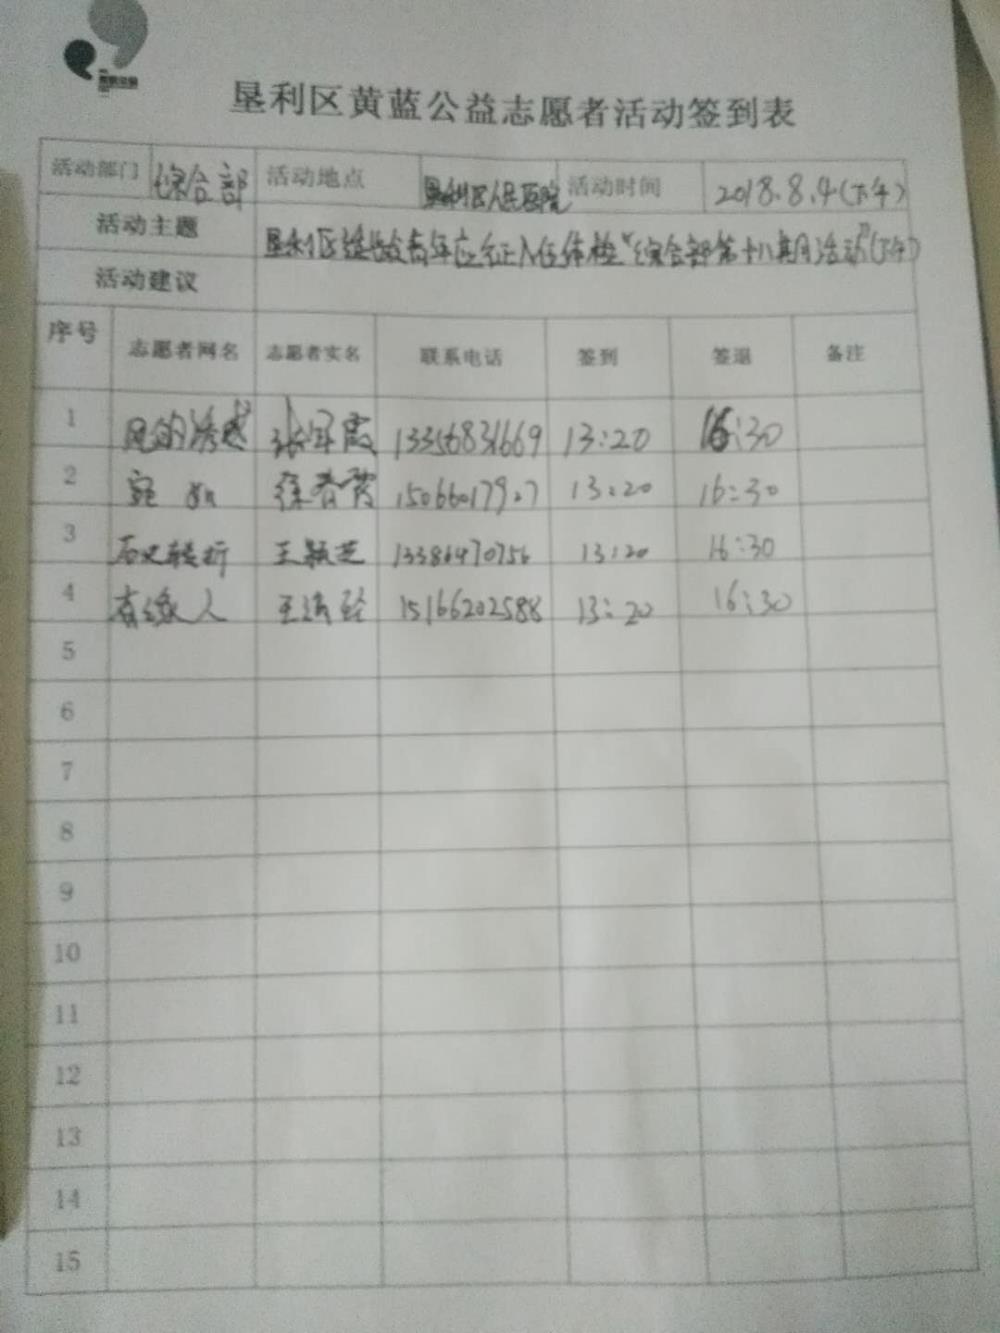 垦利区黄蓝公益志愿者活动签到表
活动部门 综合部 活动地点 垦利区人民医院 活动时间 2018.8.4(下午)
活动主题 垦利区 青年应征入伍体检"综合部第十八期月活动"(下午)
活动建议
序号 志愿者网名 志愿者实名 联系电话 签到 签退 备注
1 风的诱惑 张军霞 13356831669 13:20 16:30
2 宛如 徐春霞 15066017927 13:20 16:30
3 历史转折 王颖芝 13386470756 13:20 16:30
4 有缘人 王洪玲 15166202588 13:20 16:30
5
6
7
8
9
10
11
12
13
14
15